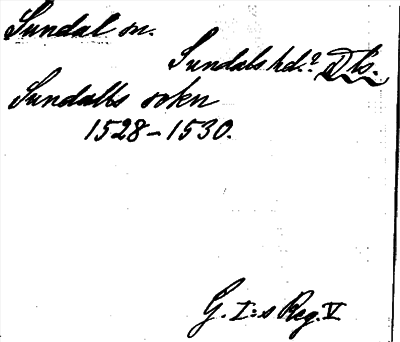 Sundal sn.
Sundals hd.? Ds.
Sundalbs sokn
1528-1530.
G. I:s Reg. V